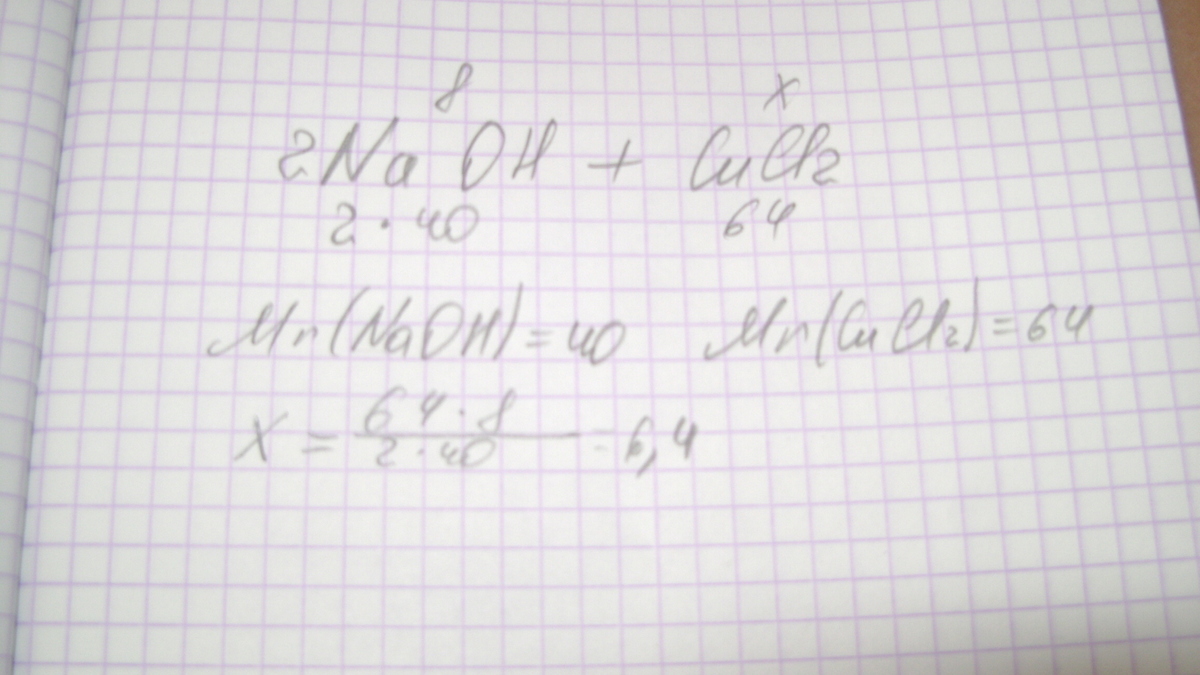 8 x
2NaOH + CuCl2
2 · 40 64
Mr(NaOH)=40 Mr(CuCl2)=64
X = 64·8 / 2·40 = 6,4